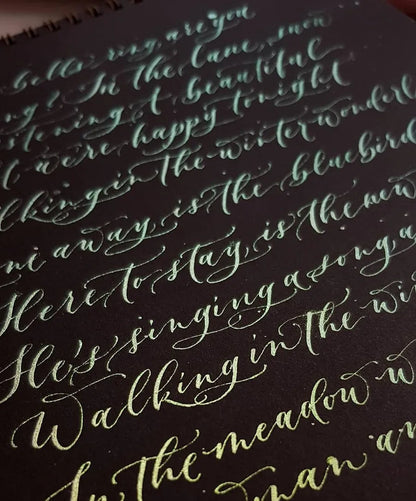 bells ring are you
? In the lane, snow
stening A beautiful
were happy tonight
lking in the winter wonderl
away is the bluebird
Here to stay is the new
He's singing a song a
Walking in the wi
In the meadow w
man an